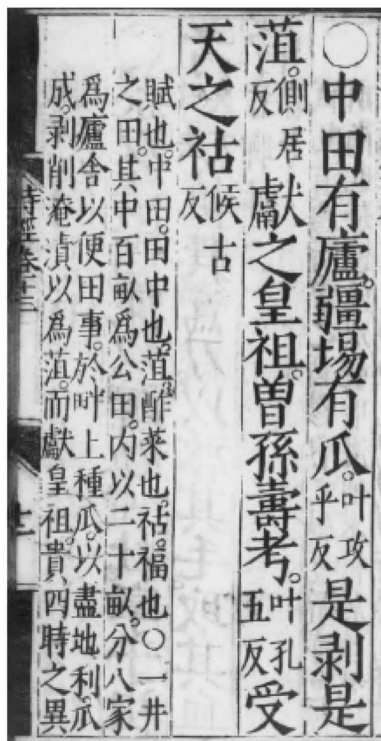 ○中田有廬。疆場有瓜。叶攻乎反是剥是
菹。側居反獻之皇祖。曾孫壽考。叶孔五反受
天之祜候古反
賦也。中田。田中也。菹。酢菜也。祜。福也○一井
之田。其中百畝爲公田。内以二十畝。分八家
爲廬舍以便田事。於畔上種瓜。以盡地利。瓜
成。剥削淹漬以爲菹。而獻皇祖。貴四時之異